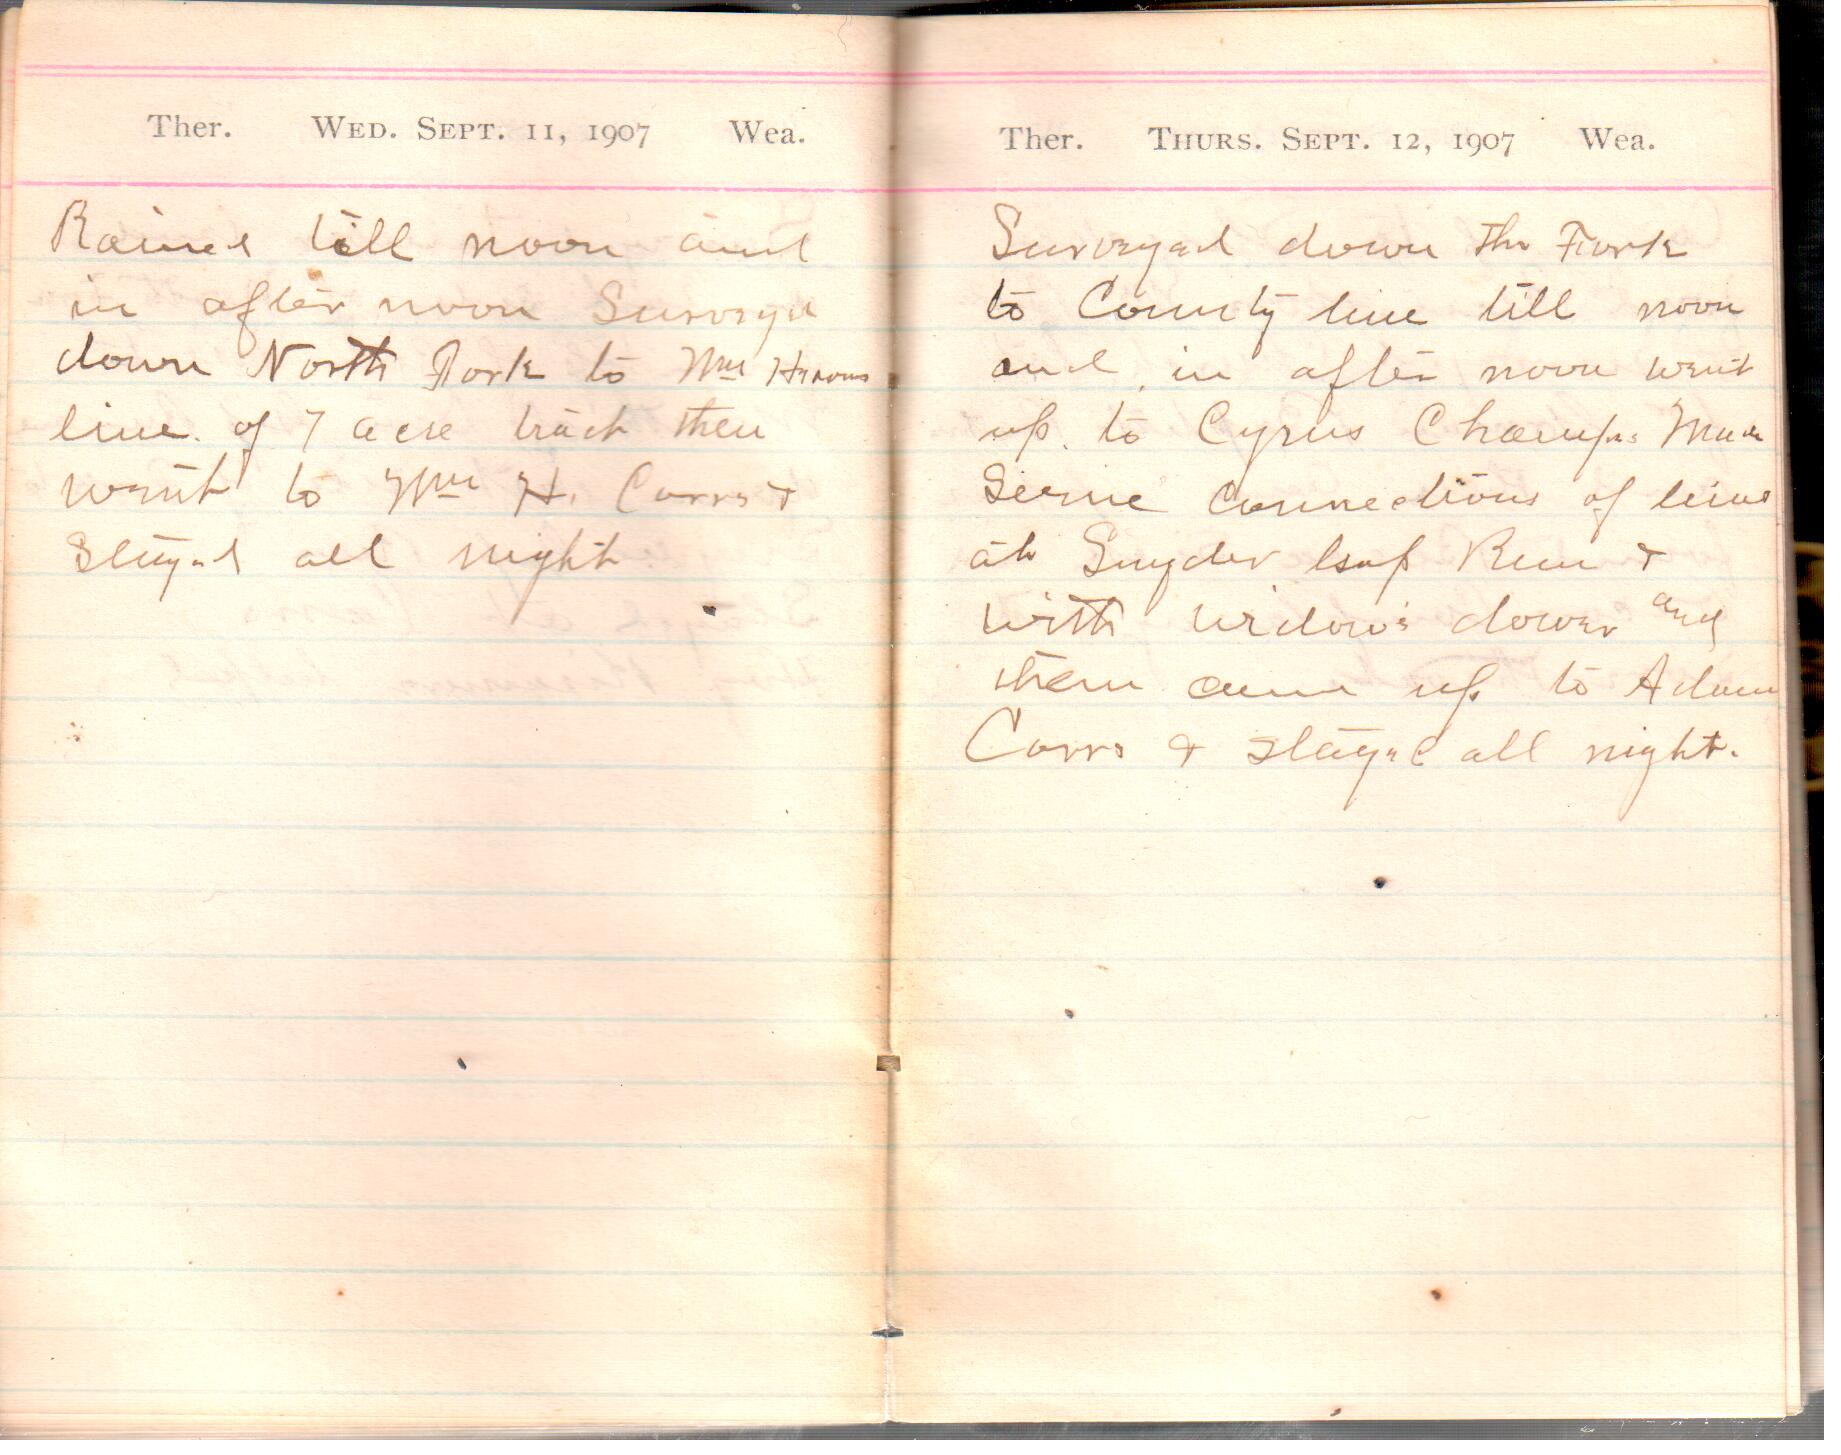 Ther. WED. SEPT. 11, 1907 Wea.
Rained till noon and
in after noon Surveyed
down North Fork to Wm
line of 7 acre tract then
went to Wm H. Carrs &
Stayed all night
Ther. THURS. SEPT. 12, 1907 Wea.
Surveyed down the Fork
to County line till noon
and in after noon went
up to Cyrus Champs Made
Some connections of lines
at Snyder Run &
with widow's dower and
then came up to Adam
Carrs & stayed all night.